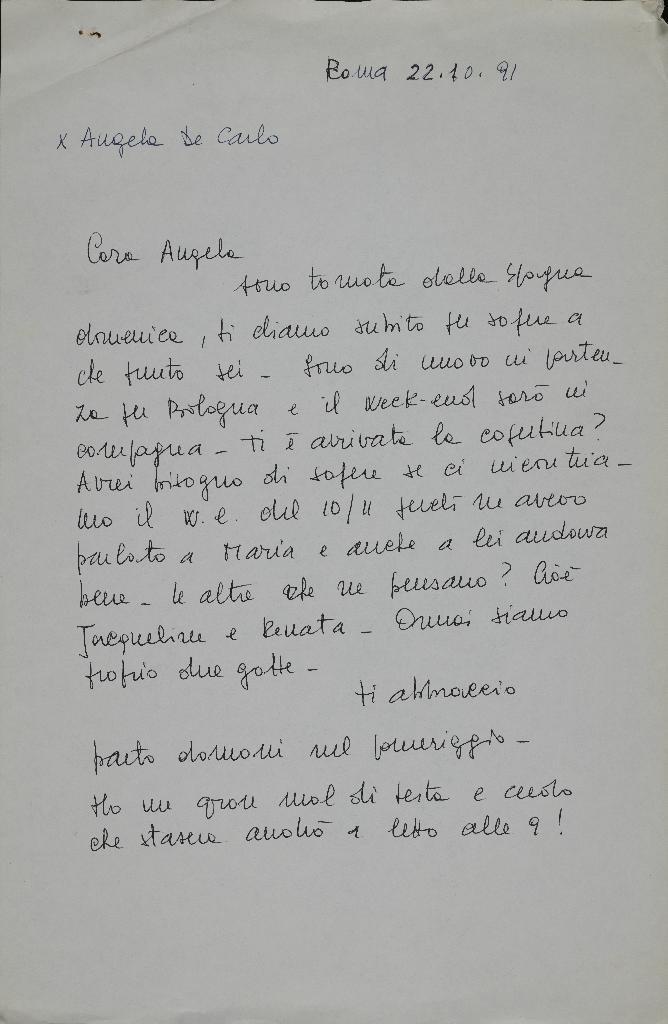 Roma 22.10.91
x Angela De Carlo
Cara Angela
sono tornata dalla Spagna
domenica, ti chiamo subito per sapere a
che punto sei - Sono di nuovo in parten-
za per Bologna e il week-end sarò in
campagna - ti è arrivata la copertina?
Avrei bisogno di sapere se ci incontria-
mo il W.E. del 10/11 perché ne avevo
parlato a Maria e anche a lei andava
bene - le altre che ne pensano? Cioè
Jacqueline e Renata - Ormai siamo
proprio due gatte -
ti abbraccio
parto domani nel pomeriggio -
Ho un gran mal di testa e credo
che stasera andrò a letto alle 9!